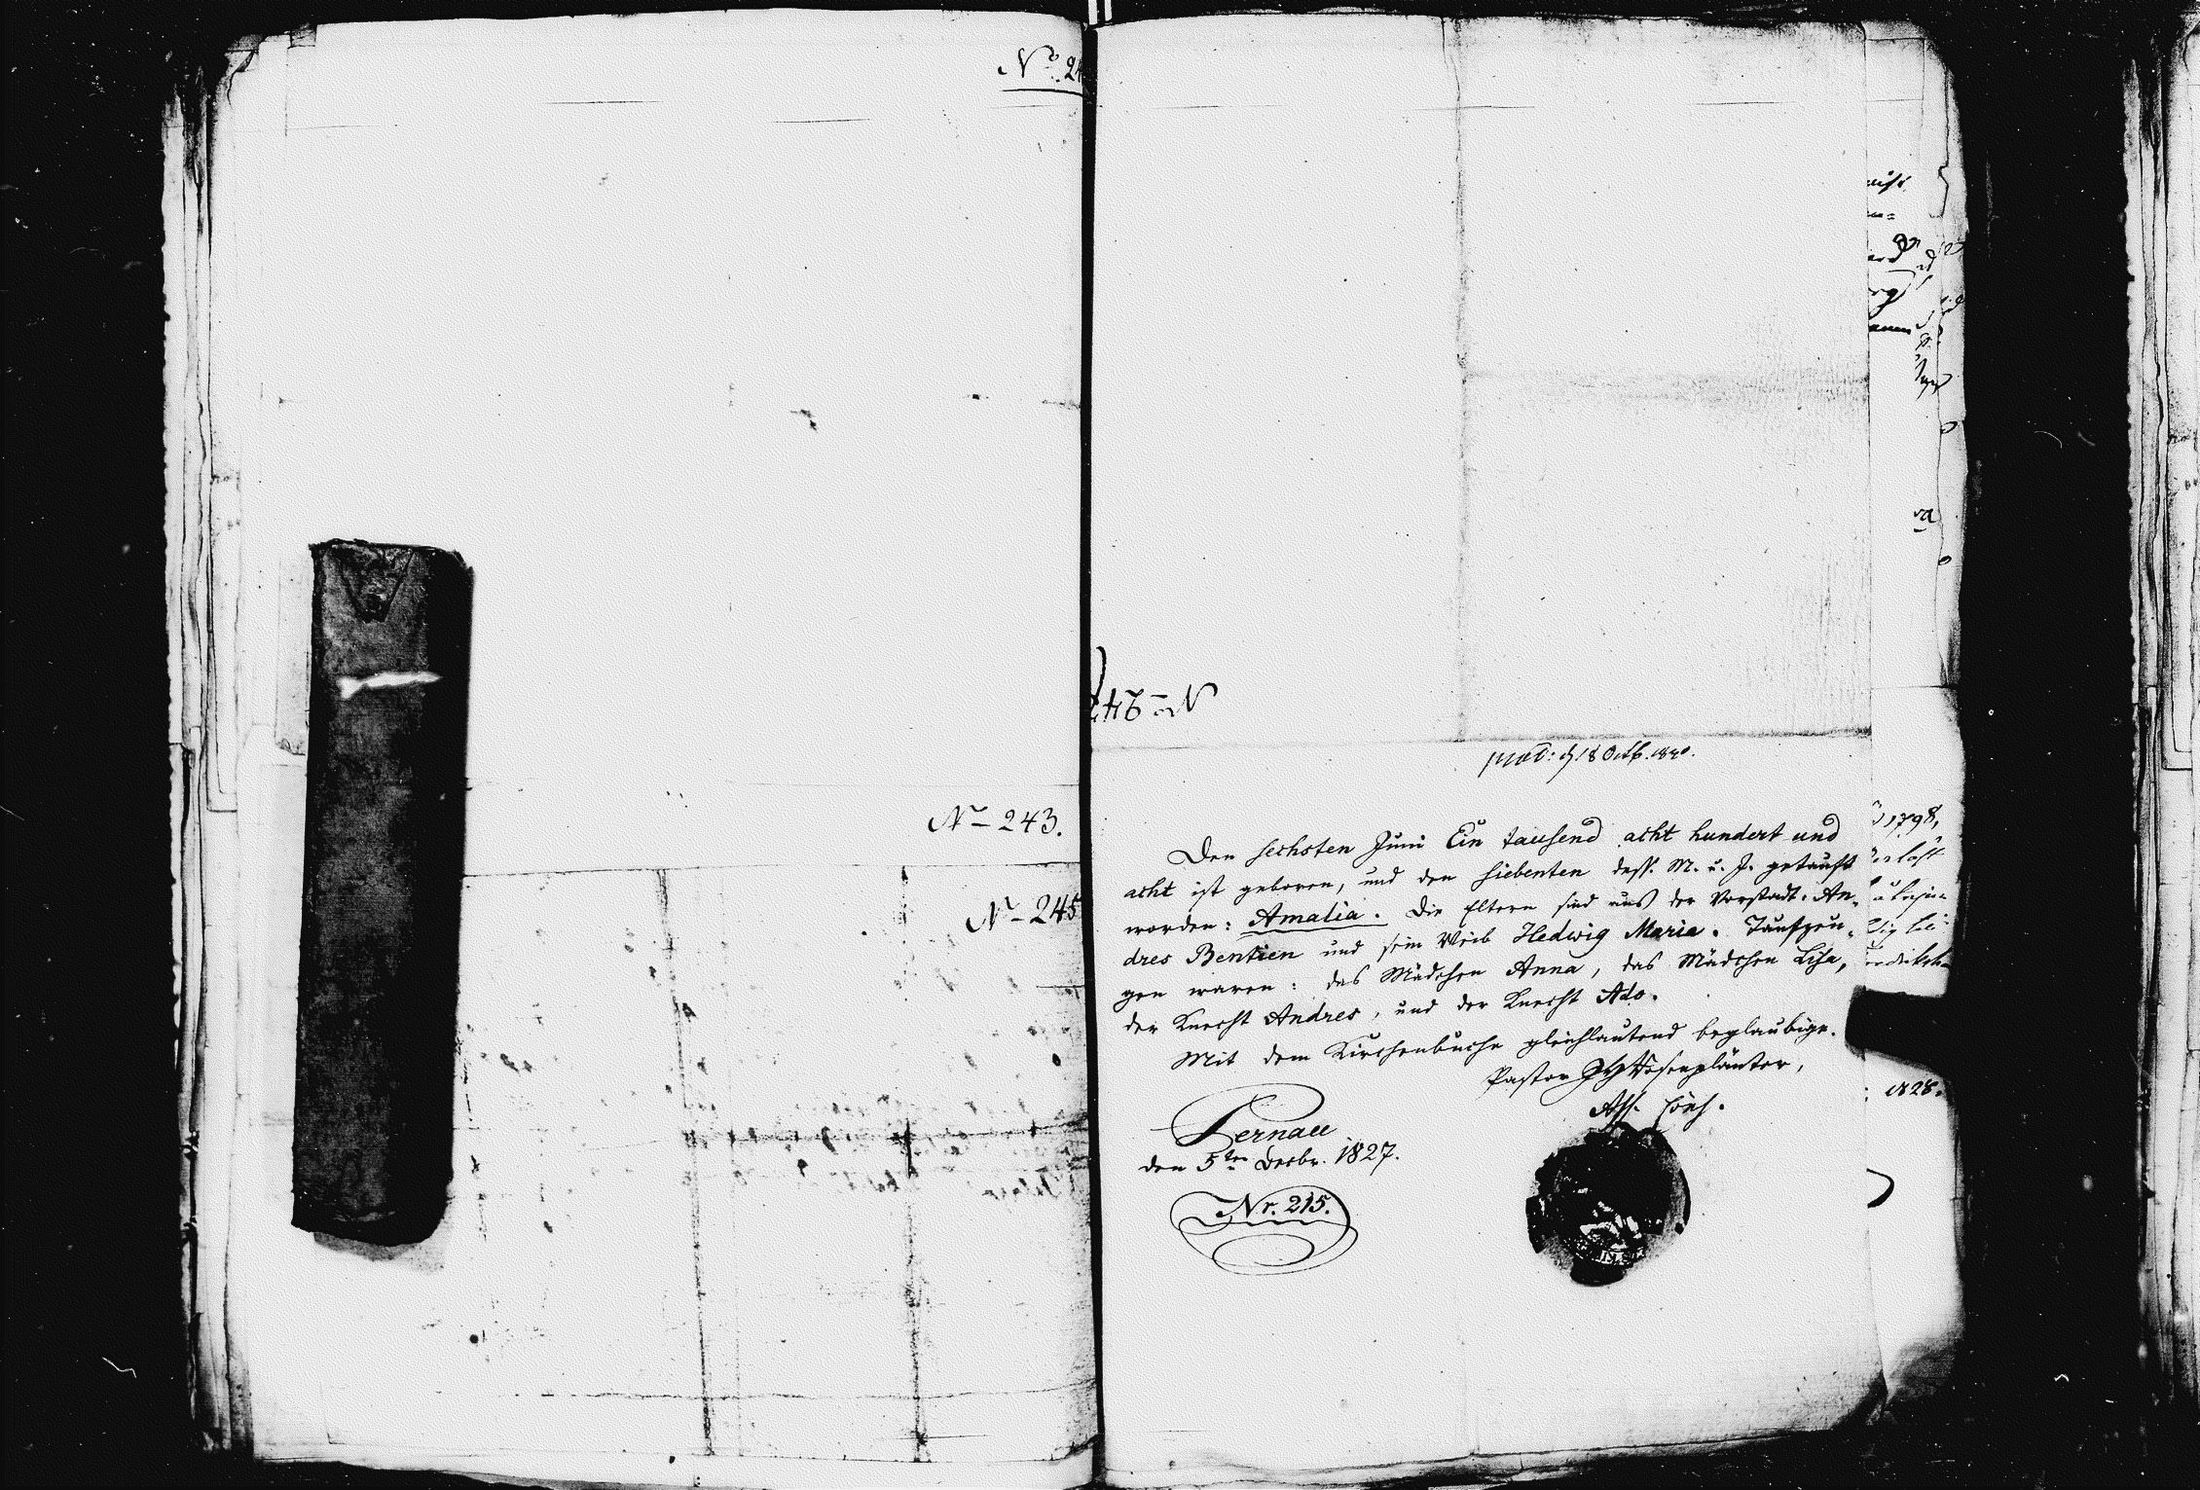 No. 24
No 243.
No 245
No 242
prod: d 18 Octb. 1830.
Den sechsten Juni Ein tausend acht hundert und
acht ist geboren, und den siebenten dess. M. u. J. getauft
worden: Amalia. Die Eltern sind aus der Vorstadt. An-
dres Bentien und sein Weib Hedwig Maria. Taufzeu-
gen waren: das Mädchen Anna, das Mädchen Lisa,
der Knecht Andres, und der Knecht Ado.
Mit dem Kirchenbuche gleichlautend beglaubige.
Pastor JHRosenplänter,
Ass. Cons.
Pernau
den 5ten Decbr. 1827.
Nr. 215.
1798,
1828.